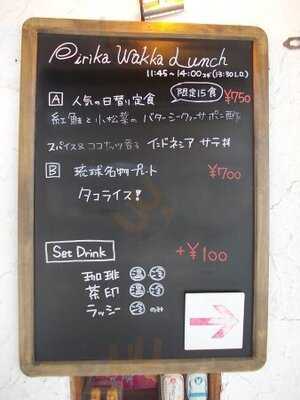 Pirika Wakka Lunch
11:45~14:00まで(13:30L.O.)
A 人気の日替り定食 限定15食 ¥750
紅鮭と小松菜のバターシークヮーサーポン酢
スパイス&ココナッツ香る インドネシア サテ
B 琉球名物プレート ¥700
タコライス!
Set Drink +¥100
珈琲 温 冷
茶印 温 冷
ラッシー 冷 のみ